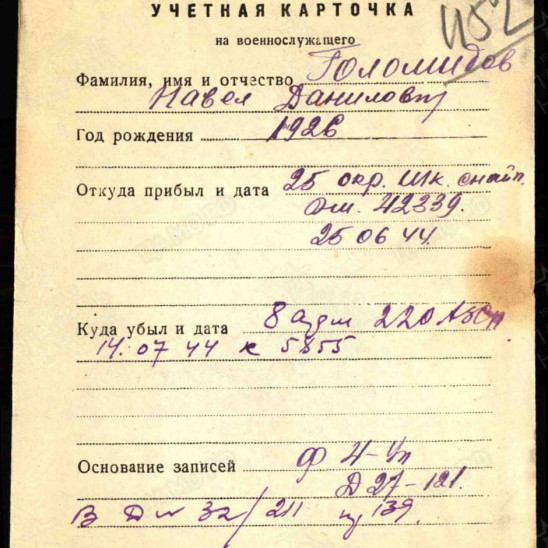 УЧЕТНАЯ КАРТОЧКА
452
на военнослужащего
Фамилия, имя и отчество Голомидов
Павел Данилович
Год рождения 1926
Откуда прибыл и дата 25 окр. шк. снайп.
эш. 42339.
25 06 44.
Куда убыл и дата 8 азсп
14.07 44 к 5855
Основание записей Ф 4-Уп
Д 27-121.
В Д № 32/211 139.